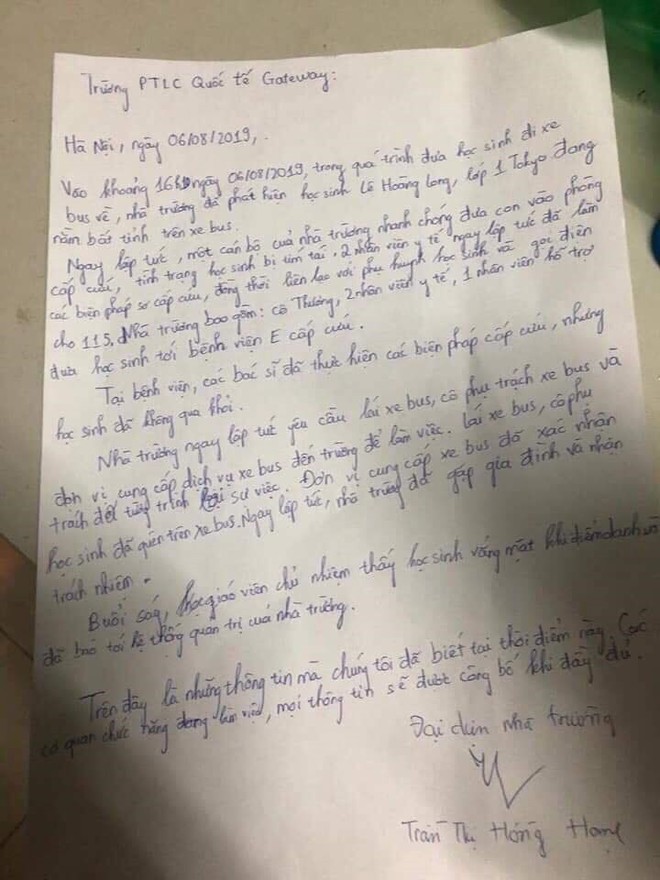 Trường PTLC Quốc tế Gateway:
Hà Nội, ngày 06/08/2019,.
Vào khoảng 16h ngày 06/08/2019, trong quá trình đưa học sinh đi xe
bus về, nhà trường đã phát hiện học sinh Lê Hoàng Long, lớp 1 Tokyo đang
nằm bất tỉnh trên xe bus.
Ngay lập tức, một cán bộ của nhà trường nhanh chóng đưa con vào phòng
cấp cứu, tình trạng học sinh bị tím tái, 2 nhân viên y tế ngay lập tức đã làm
các biện pháp sơ cấp cứu, đồng thời liên lạc với phụ huynh học sinh và gọi điện
cho 115. Nhà trường bao gồm: cô Thương, 2 nhân viên y tế, 1 nhân viên hỗ trợ
đưa học sinh tới bệnh viện E cấp cứu.
Tại bệnh viện, các bác sĩ đã thực hiện các biện pháp cấp cứu, nhưng
học sinh đã không qua khỏi.
Nhà trường ngay lập tức yêu cầu lái xe bus, cô phụ trách xe bus và
đơn vị cung cấp dịch vụ xe bus đến trường để làm việc. Lái xe bus, cô phụ
trách để tường trình sự việc. Đơn vị cung cấp xe bus đã xác nhận
học sinh đã quên trên xe bus. Ngay lập tức, nhà trường đã gặp gia đình và nhận
trách nhiệm.
Buổi sáng, giáo viên chủ nhiệm thấy học sinh vắng mặt khi điểm danh và
đã báo tới hệ thống quản trị của nhà trường.
Trên đây là những thông tin mà chúng tôi đã biết tại thời điểm này. Các
cơ quan chức năng đang làm việc, mọi thông tin sẽ được công bố khi đầy đủ.
Đại diện nhà trường
Trần Thị Hồng Hạnh